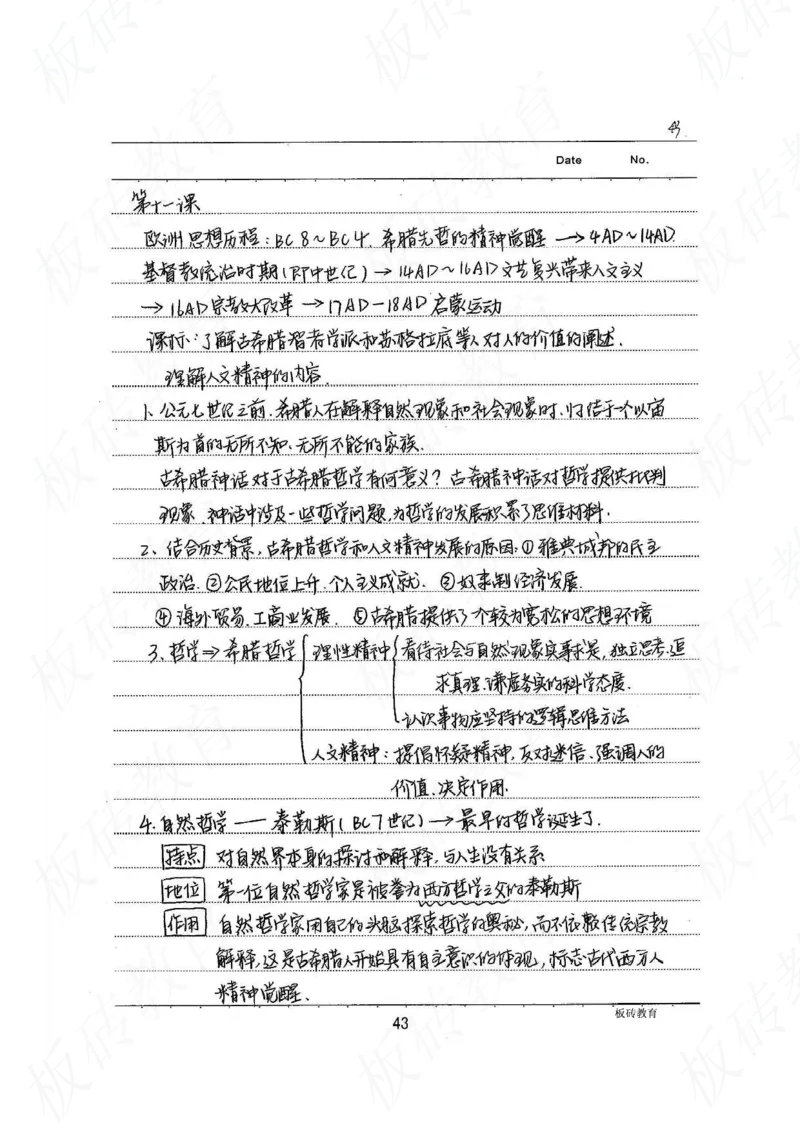 43
Date No.
第十一课
欧洲思想历程：BC 8～BC 4. 希腊先哲的精神觉醒 → 4AD～14AD.
基督教统治时期（即中世纪）→ 14AD～16AD 文艺复兴带来人文主义
→ 16AD 宗教大改革 → 17AD－18AD 启蒙运动
课标：了解古希腊智者学派和苏格拉底等人对人的价值的阐述.
理解人文精神的内容.
1、公元七世纪之前，希腊人在解释自然现象和社会现象时，归结于一个以宙
斯为首的无所不知、无所不能的家族.
古希腊神话对于古希腊哲学有何意义？古希腊神话对哲学提供批判
现象、神话中涉及一些哲学问题，为哲学的发展积累了思维材料.
2、结合历史背景，古希腊哲学和人文精神发展的原因：① 雅典城邦的民主
政治. ②公民地位上升、个人主义成就. ③奴隶制经济发展.
④ 海外贸易、工商业发展. ⑤古希腊提供了个较为宽松的思想环境
3、哲学⇒希腊哲学 理性精神 看待社会与自然现象实事求是，独立思考、追
求真理、谦虚务实的科学态度.
认识事物应坚持的逻辑思维方法
人文精神：提倡怀疑精神，反对迷信、强调人的
价值、决定作用.
4. 自然哲学 —— 泰勒斯（BC 7世纪）→ 最早的哲学诞生了.
特点 对自然界本身的探讨和解释，与人生没有关系
地位 第一位自然哲学家是被誉为西方哲学之父的泰勒斯
作用 自然哲学家用自己的头脑探索哲学的奥秘，而不依赖传统宗教
解释，这是古希腊人开始具有自主意识的体现，标志古代西方人
精神觉醒.
43
板砖教育